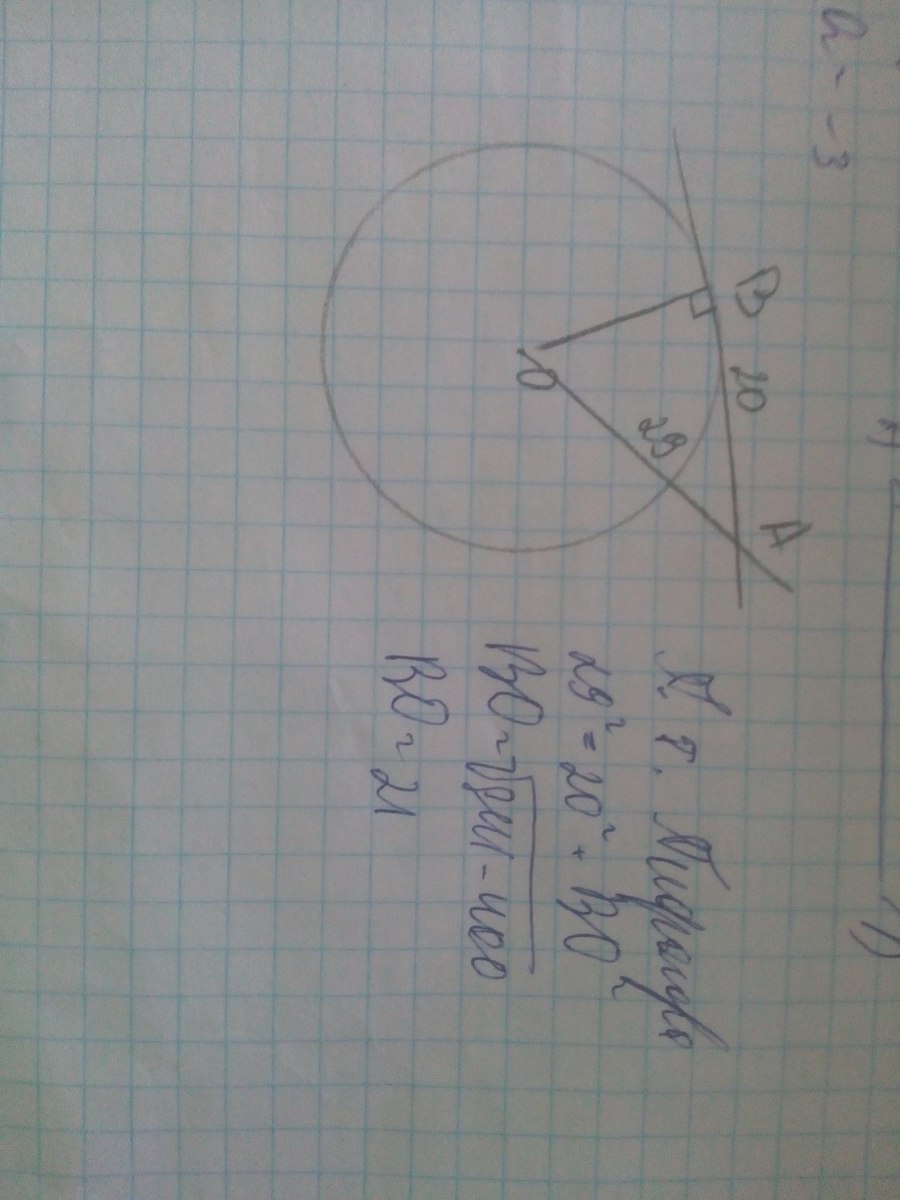 a = -3
B
20
A
29
O
П. т. Пифагора
29² = 20² + BO²
BO = √841-400
BO = 21